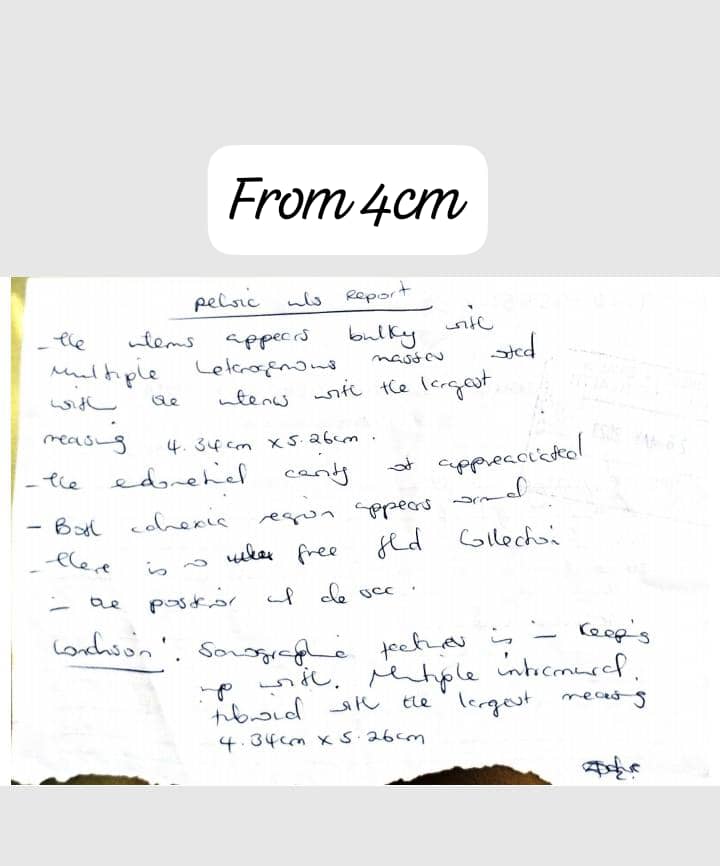 From 4cm
pelvic u/s Report
- the uterus appears bulky with
Multiple heterogenous masses noted
with the uterus with the largest
measuring 4.34cm x 5.26cm.
- the endometrial cavity not appreaciated
- Both adnexia region appears normal.
- there is no free fluid Collection
in the posterior cul de sac.
Conclusion: Sonographic features is in keeping
up with. Multiple intramural.
fibroid with the largest measuring
4.34cm x 5.26cm